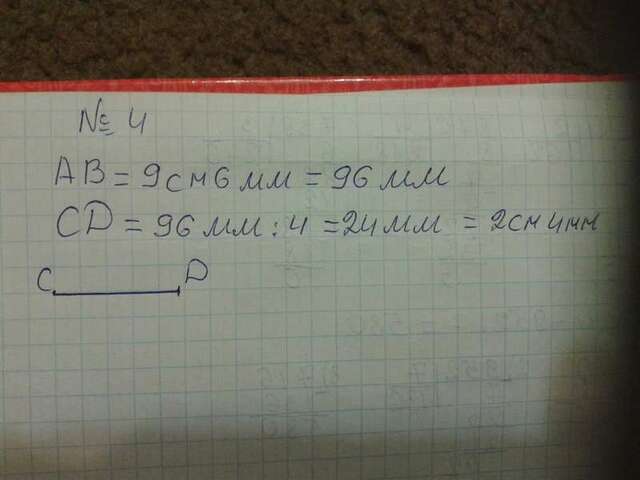 № 4
AB = 9см 6 мм = 96 мм
CD = 96 мм : 4 = 24 мм = 2см 4мм
C D